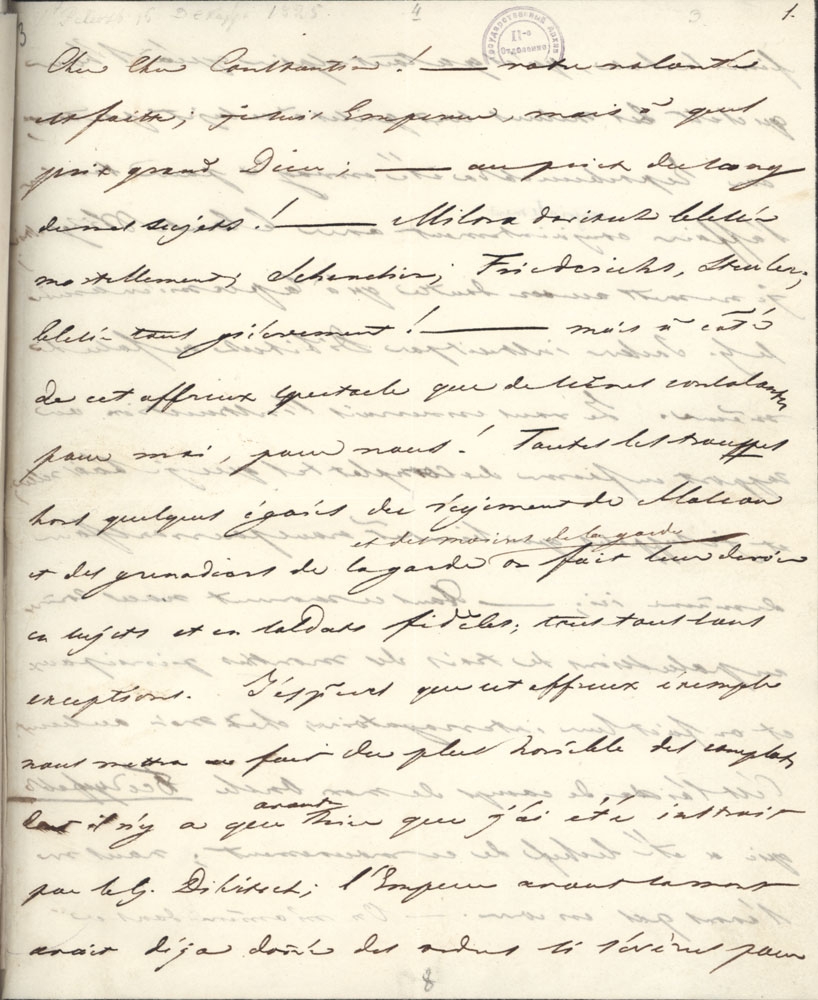 1825 4 3 1.
3
II-е Отделение
Cher Cher Constantin! — votre volonté
est faite; je suis Empereur, mais à quel
prix grand Dieu; — au prix du sang
de mes sujets! — Milora dovitsch blessé
mortellement; Schenchin, Friederichs, Steuler,
blessés tous grièvement! — mais à côté
de cet affreux spectacle que de scènes consolantes
pour moi, pour nous! Toutes les trouppes
hors quelques égarés du régiment de Moscou
et des marins de la garde
et des grenadiers de la garde on fait leur devoir
en sujets et en soldats fidèles, tous sans
exceptions. J'espère que cet affreux éxemple
nous mettra au fait du plus horible des complots
avant
il n'y a que hier que j'ai été instruit
par le G. Dibitsch; l'Empereur avant sa mort
avait déja donné des ordres si sévères pour
8